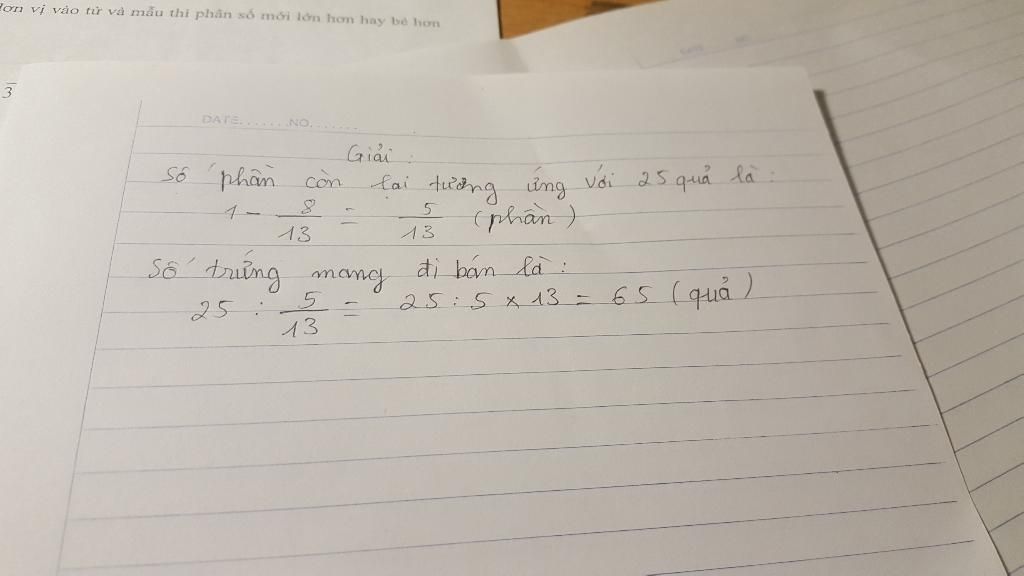 đơn vị vào tử và mẫu thì phân số mới lớn hơn hay bé hơn
3
DATE.......NO.......
Giải:
Số phần còn lại tương ứng với 25 quả là:
1 - 8/13 = 5/13 (phần)
Số trứng mang đi bán là:
25 : 5/13 = 25 : 5 x 13 = 65 (quả)